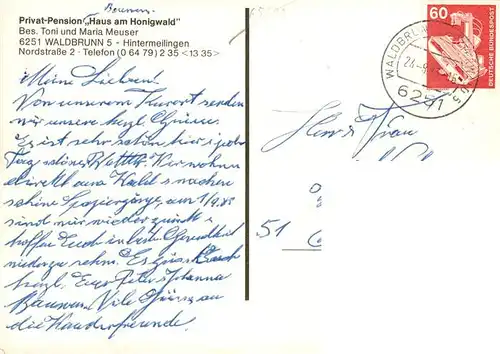 Baumann
Privat-Pension „Haus am Honigwald"
Bes. Toni und Maria Meuser
6251 WALDBRUNN 5 - Hintermeilingen
Nordstraße 2 · Telefon (0 64 79) 2 35 <13 35>
Meine Lieben!
Von unserem Kurort senden
wir unsere herzl. Grüsse.
Es ist sehr schön hier jeden
Tag schönes Wetter. Wir wohnen
direkt am Wald machen
schöne Spaziergänge, am 1/9.85
sind wir wieder zurück
hoffen Euch in bester Gesundheit
wieder zu sehn. Es grüsst Euch
herzl. Eure Peter & Johanna
Baumann. Viele Grüsse an
die Wanderfreunde.
Herrn Frau
51
60
DEUTSCHE BUNDESPOST
WALDBRUNN
6251